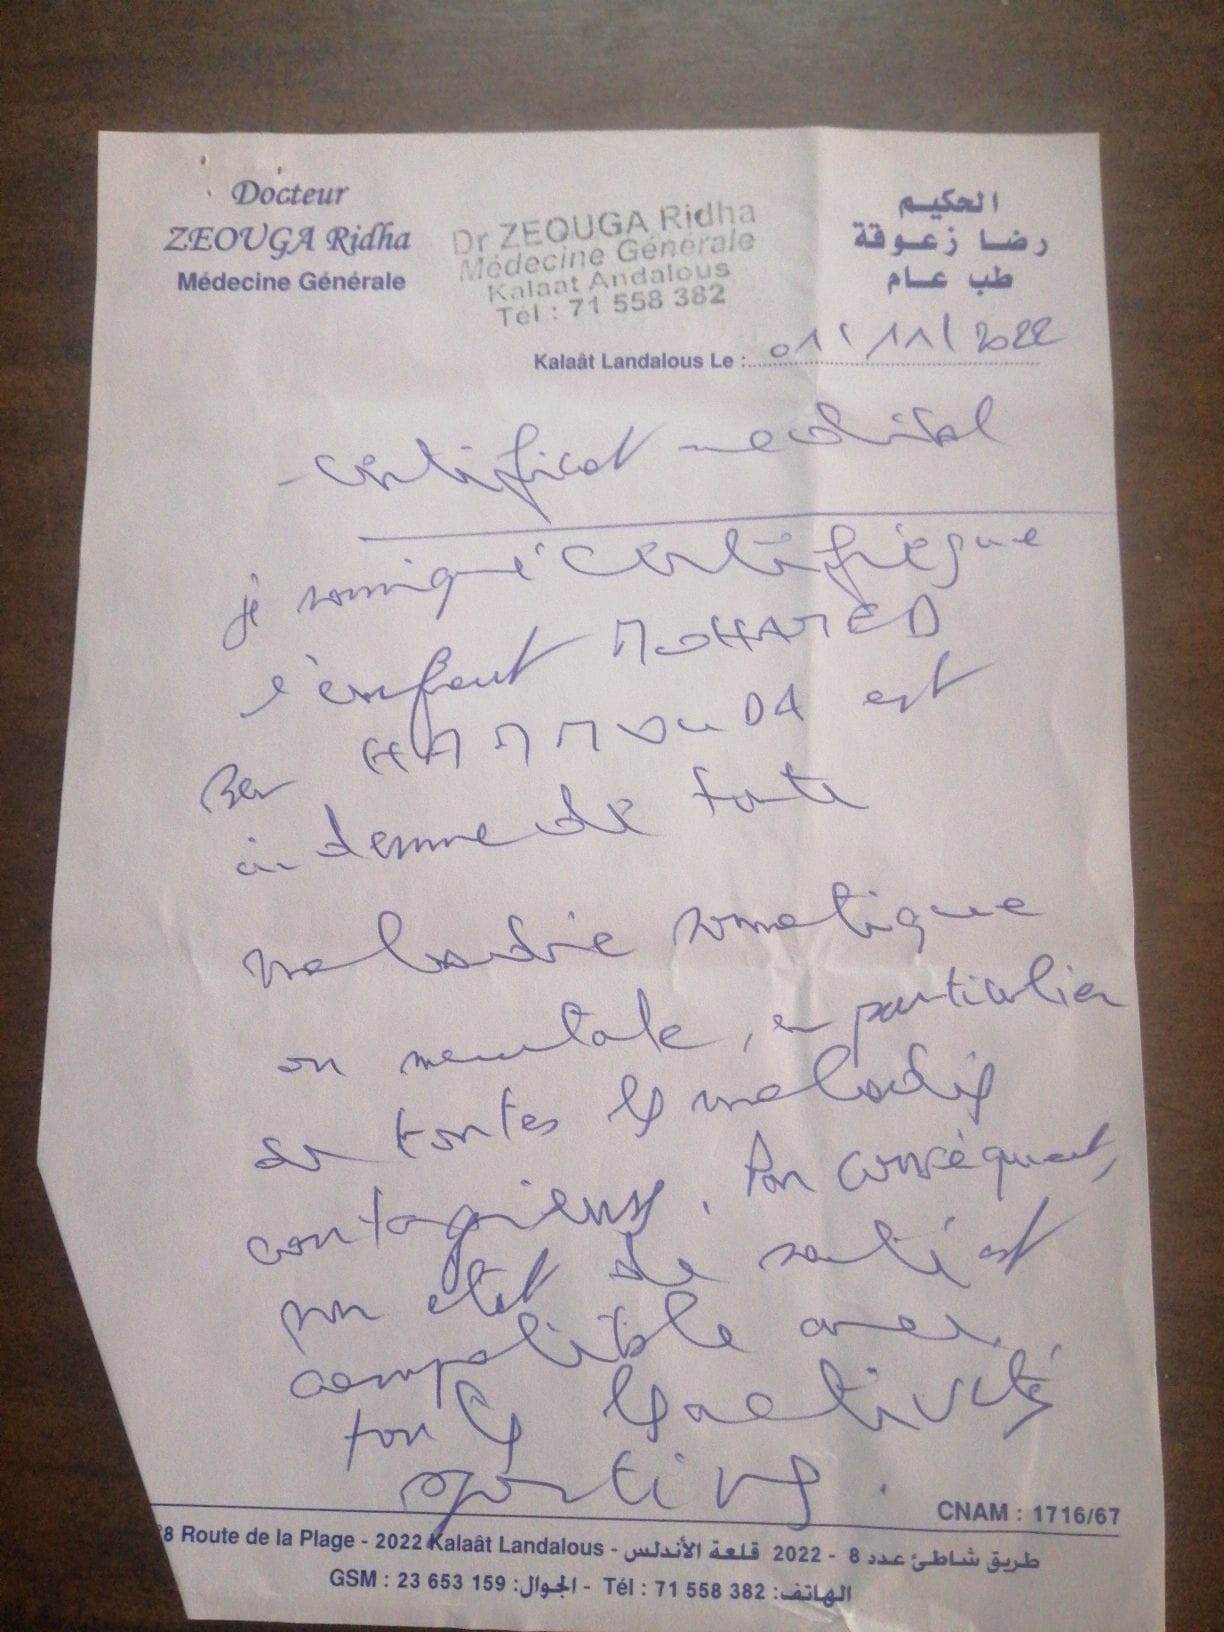 Docteur
ZEOUGA Ridha
Médecine Générale
Dr ZEOUGA Ridha
Médecine Générale
Kalaat Andalous
Tél : 71 558 382
الحكيم
رضا زعوقة
طب عام
Kalaât Landalous Le : 01/11/2022
- certificat medical
je soussigné certifie que
l'enfant MOHAMED
Ben HAMMOUDA est
indemne de toute
maladie somatique
ou mentale, en particulier
de toutes les maladies
contagieuses. Par conséquent,
son état de santé est
compatible avec
tous les activités
sportives.
CNAM : 1716/67
8 Route de la Plage - 2022 Kalaât Landalous - طريق شاطئ عدد 8 - 2022 قلعة الأندلس
GSM : 23 653 159 :الجوال - Tél : 71 558 382 :الهاتف